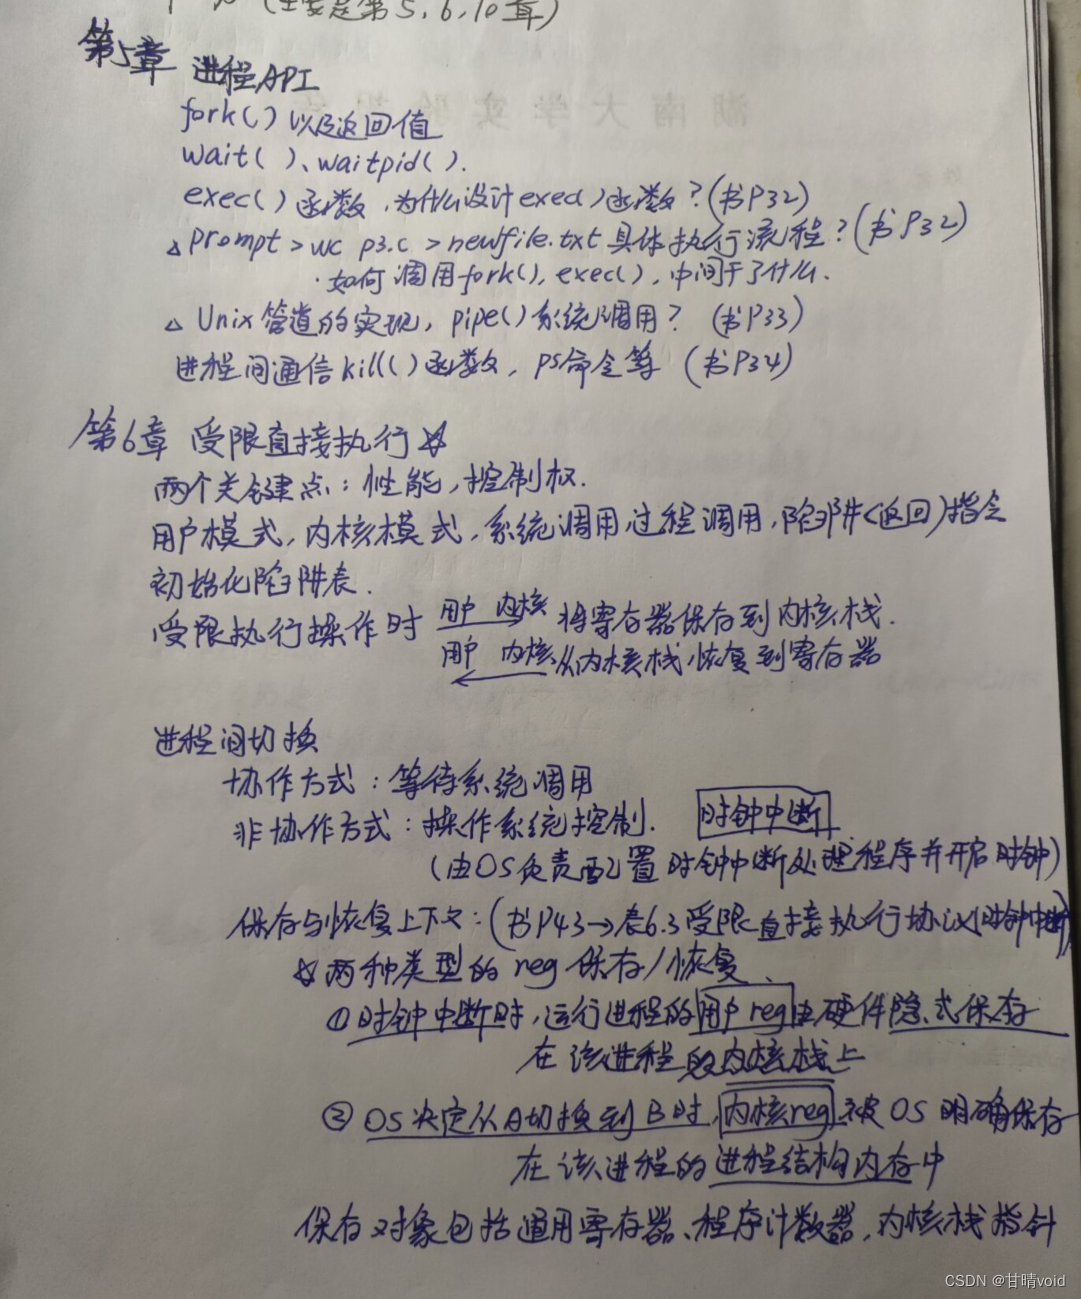 (主要是第5、6、10章)
湖南大学实验报告
第5章 进程API
fork()以及返回值
wait()、waitpid().
exec()函数,为什么设计exec()函数?(书P32)
△ Prompt > wc p3.c > newfile.txt 具体执行流程?(书P32)
·如何调用fork(), exec(), 中间干了什么.
△ Unix管道的实现, pipe()系统调用? (书P33)
进程间通信kill()函数, ps命令等 (书P34)
第6章 受限直接执行☆
两个关键点:性能,控制权.
用户模式,内核模式,系统调用,过程调用,陷阱(返回)指令
初始化陷阱表.
受限执行操作时 用户 内核 将寄存器保存到内核栈.
用户 内核 从内核栈恢复到寄存器
进程间切换
协作方式:等待系统调用
非协作方式:操作系统控制. 时钟中断
(由OS负责配置时钟中断处理程序并开启时钟)
保存与恢复上下文:(书P43→表6.3受限直接执行协议(时钟中断)
☆两种类型的reg保存/恢复.
①时钟中断时,运行进程的用户reg由硬件隐式保存
在该进程的内核栈上
②OS决定从A切换到B时,内核reg被OS明确保存
在该进程的进程结构内存中
保存对象包括通用寄存器、程序计数器,内核栈指针
CSDN @甘晴void